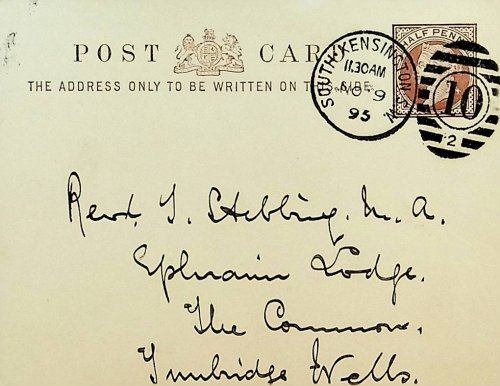 POST CARD
HALF PENNY
THE ADDRESS ONLY TO BE WRITTEN ON THIS SIDE.
SOUTH-KENSINGTON
11.30AM
NO 9
95
10
2
Revd. T. Stebbing. M. A.
Ephraim Lodge.
The Common.
Tunbridge Wells.